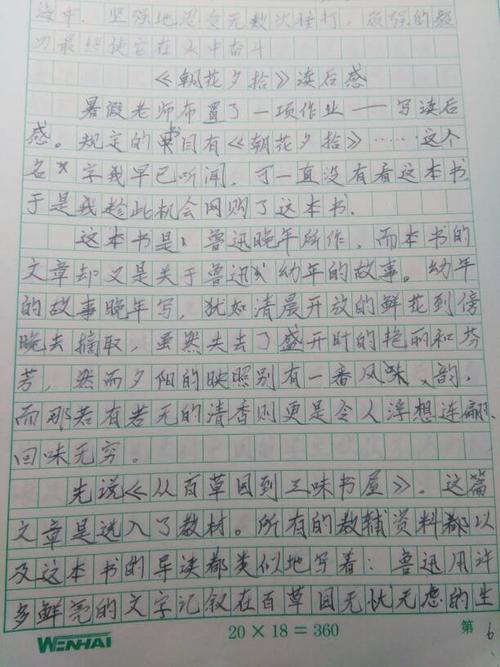 海中．坚强地忍受无数次捶打，顽强的毅
力最终使它在火中奋斗
《朝花夕拾》读后感
暑假老师布置了一项作业——写读后
感。规定的书目有《朝花夕拾》……这个
名字我早已听闻，可一直没有看这本书
于是我趁此机会网购了这本书．
这本书是鲁迅晚年所作，而本书的
文章却又是关于鲁迅幼年的故事。幼年
的故事晚年写，犹如清晨开放的鲜花到傍
晚去摘取，虽然失去了盛开时的艳丽和芬
芳，然而夕阳的映照别有一番风味、韵，
而那若有若无的清香则更是令人浮想连翩、
回味无穷。
先说《从百草园到三味书屋》．这篇
文章是选入了教材。所有的教辅资料都以
及这本书的导读都类似地写着：鲁迅用许
多鲜亮的文字记叙在百草园无忧无虑的生
WENHAI 20×18=360 第 6